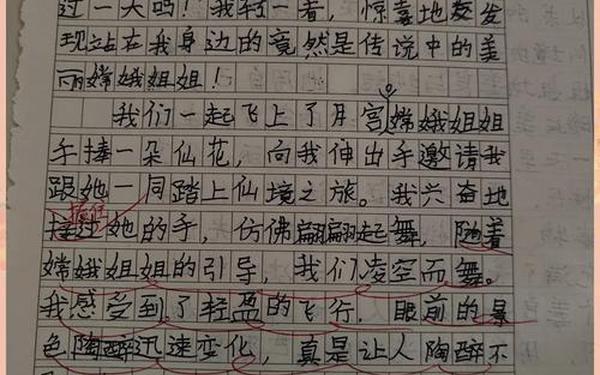 过一天吗！我轻一看，惊喜地发发
现站在我身边的竟然是传说中的美
丽嫦娥姐姐！
我们一起飞上了月宫，嫦娥姐姐
手捧一朵仙花，向我伸出手邀请我
跟她一同踏上仙境之旅。我兴奋地
握住
接过她的手，仿佛翩翩起舞，随着
嫦娥姐姐的引导，我们凌空而舞。
我感受到了轻盈的飞行，眼前的景
色陶醉迅速变化，真是让人陶醉不